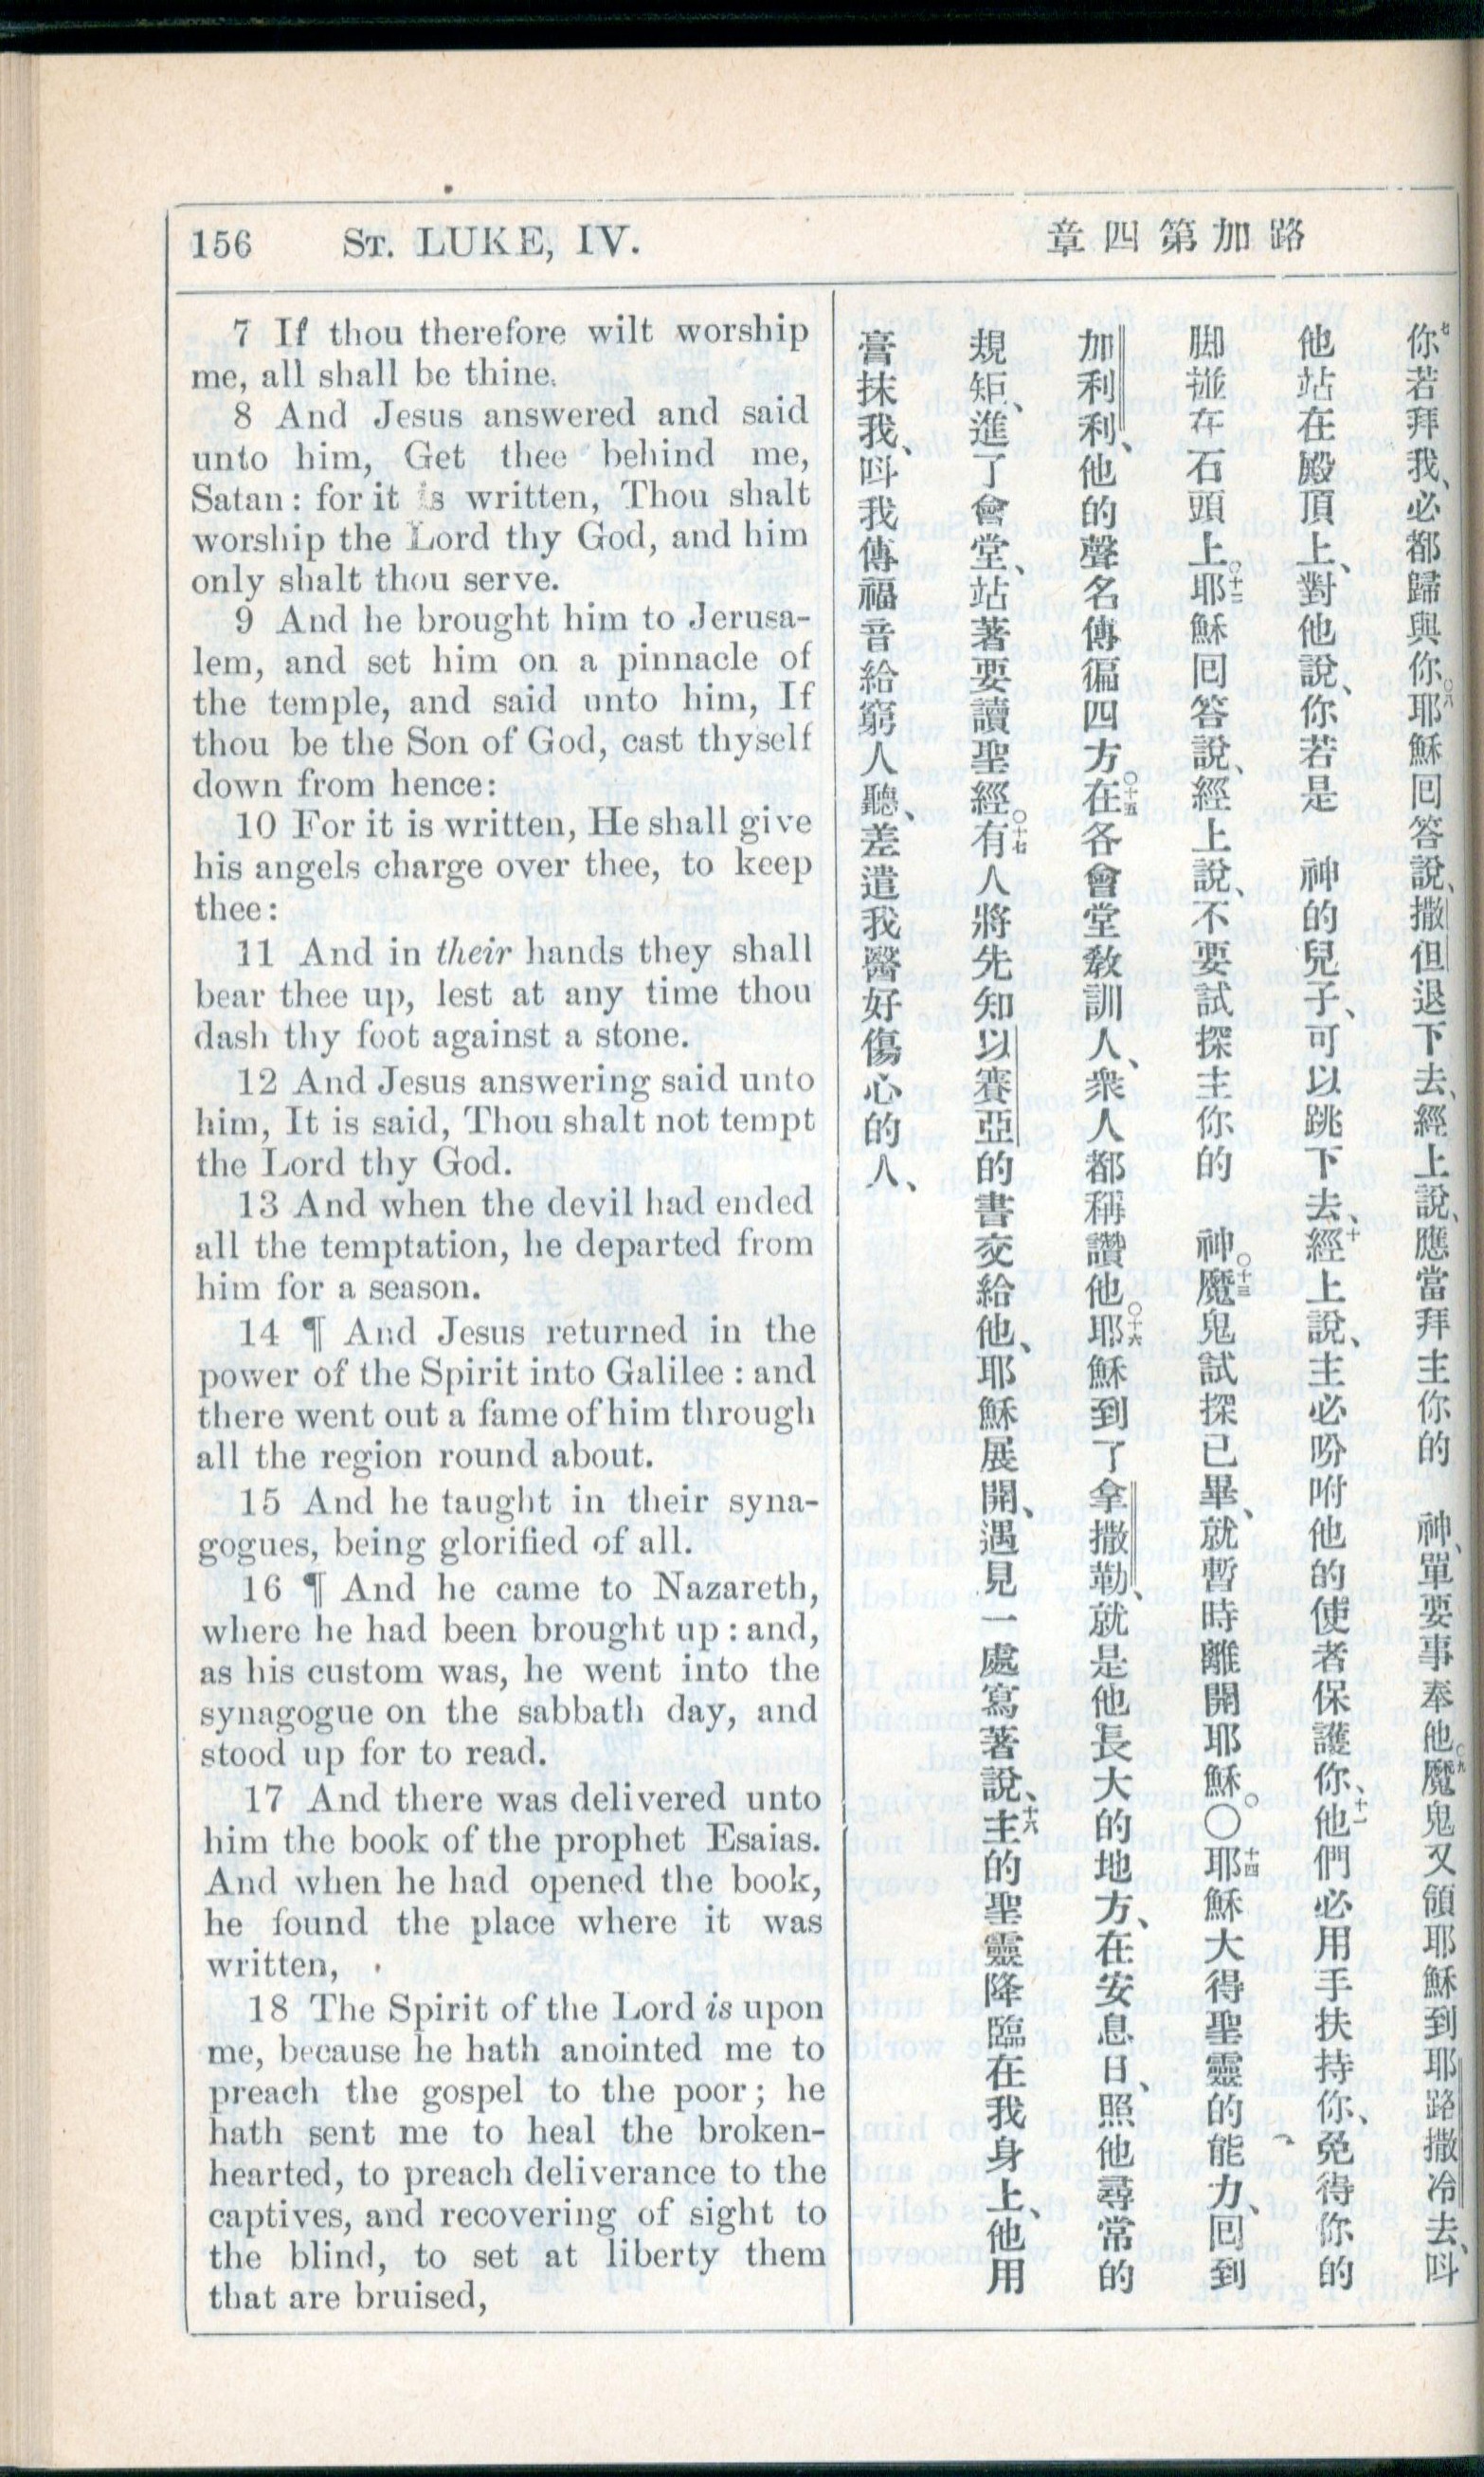 156 ST. LUKE, IV.
路加第四章
7 If thou therefore wilt worship
me, all shall be thine.
8 And Jesus answered and said
unto him, Get thee behind me,
Satan: for it is written, Thou shalt
worship the Lord thy God, and him
only shalt thou serve.
9 And he brought him to Jerusa-
lem, and set him on a pinnacle of
the temple, and said unto him, If
thou be the Son of God, cast thyself
down from hence:
10 For it is written, He shall give
his angels charge over thee, to keep
thee:
11 And in their hands they shall
bear thee up, lest at any time thou
dash thy foot against a stone.
12 And Jesus answering said unto
him, It is said, Thou shalt not tempt
the Lord thy God.
13 And when the devil had ended
all the temptation, he departed from
him for a season.
14 ¶ And Jesus returned in the
power of the Spirit into Galilee: and
there went out a fame of him through
all the region round about.
15 And he taught in their syna-
gogues, being glorified of all.
16 ¶ And he came to Nazareth,
where he had been brought up: and,
as his custom was, he went into the
synagogue on the sabbath day, and
stood up for to read.
17 And there was delivered unto
him the book of the prophet Esaias.
And when he had opened the book,
he found the place where it was
written,
18 The Spirit of the Lord is upon
me, because he hath anointed me to
preach the gospel to the poor; he
hath sent me to heal the broken-
hearted, to preach deliverance to the
captives, and recovering of sight to
the blind, to set at liberty them
that are bruised,
七你若拜我、必都歸與你。八耶穌回答說、撒但退下去、經上說、應當拜主你的 神、單要事奉他。九魔鬼又領耶穌到耶路撒冷去、呌
他站在殿頂上、對他說、你若是 神的兒子、可以跳下去、十經上說、主必吩咐他的使者保護你、十一他們必用手扶持你、免得你的
脚碰在石頭上。十二耶穌回答說、經上說、不要試探主你的 神。十三魔鬼試探已畢、就暫時離開耶穌。〇十四耶穌大得聖靈的能力、回到
加利利、他的聲名傳徧四方。十五在各會堂敎訓人、衆人都稱讚他。十六耶穌到了拿撒勒、就是他長大的地方、在安息日、照他尋常的
規矩、進了會堂、站著要讀聖經。十七有人將先知以賽亞的書交給他、耶穌展開、遇見一處寫著說、十六主的聖靈降臨在我身上、他用
膏抹我、呌我傳福音給窮人聽、差遣我醫好傷心的人、